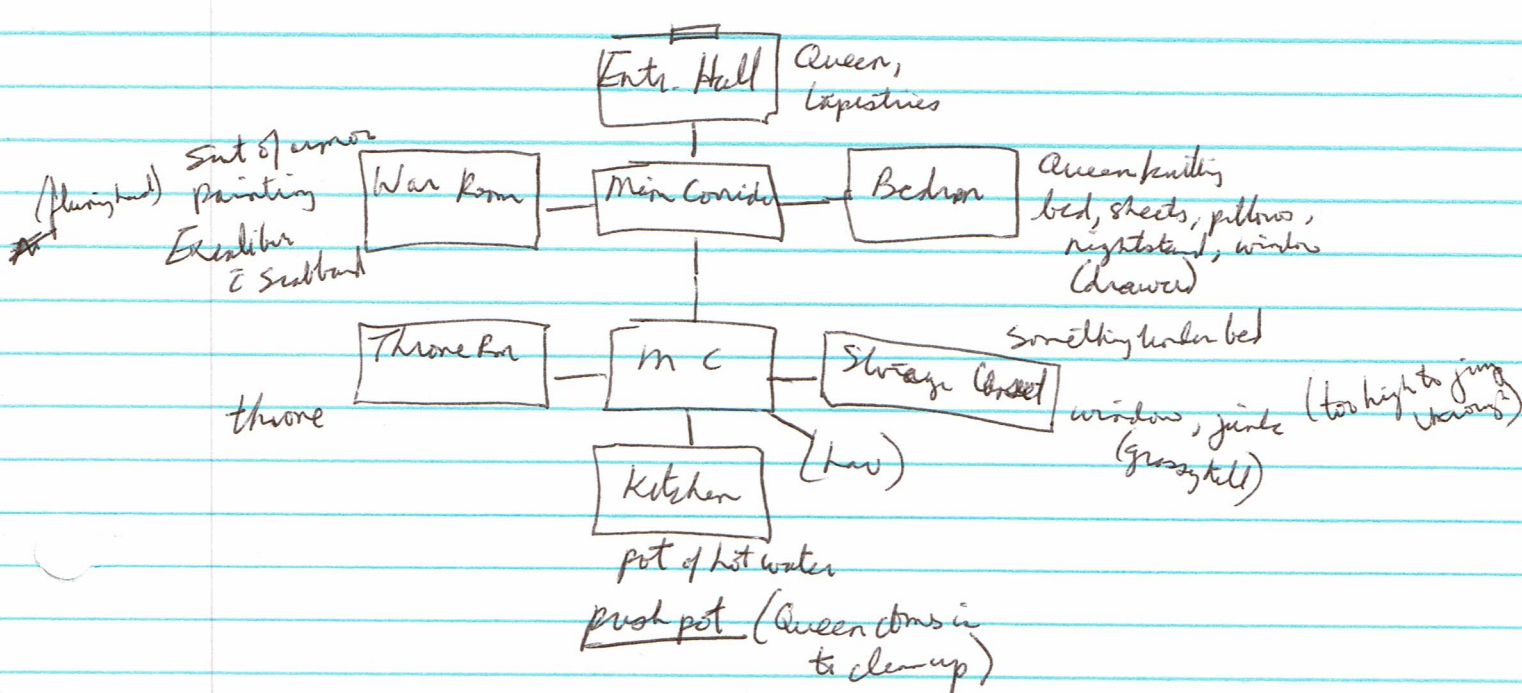 Entr. Hall
Queen,
tapistries
Suit of armor
painting
Excalibur
c̄ Scabbard
War Room
Main Corrido
Bedroom
Queen knitting
bed, sheets, pillows,
nightstand, window
(drawer)
Something under bed
Throne Rm
throne
M C
Storage Closet
window, junk
(grassy hill)
(too high to jump
through)
(Lav)
Kitchen
pot of hot water
push pot (Queen coms in
to clean up)